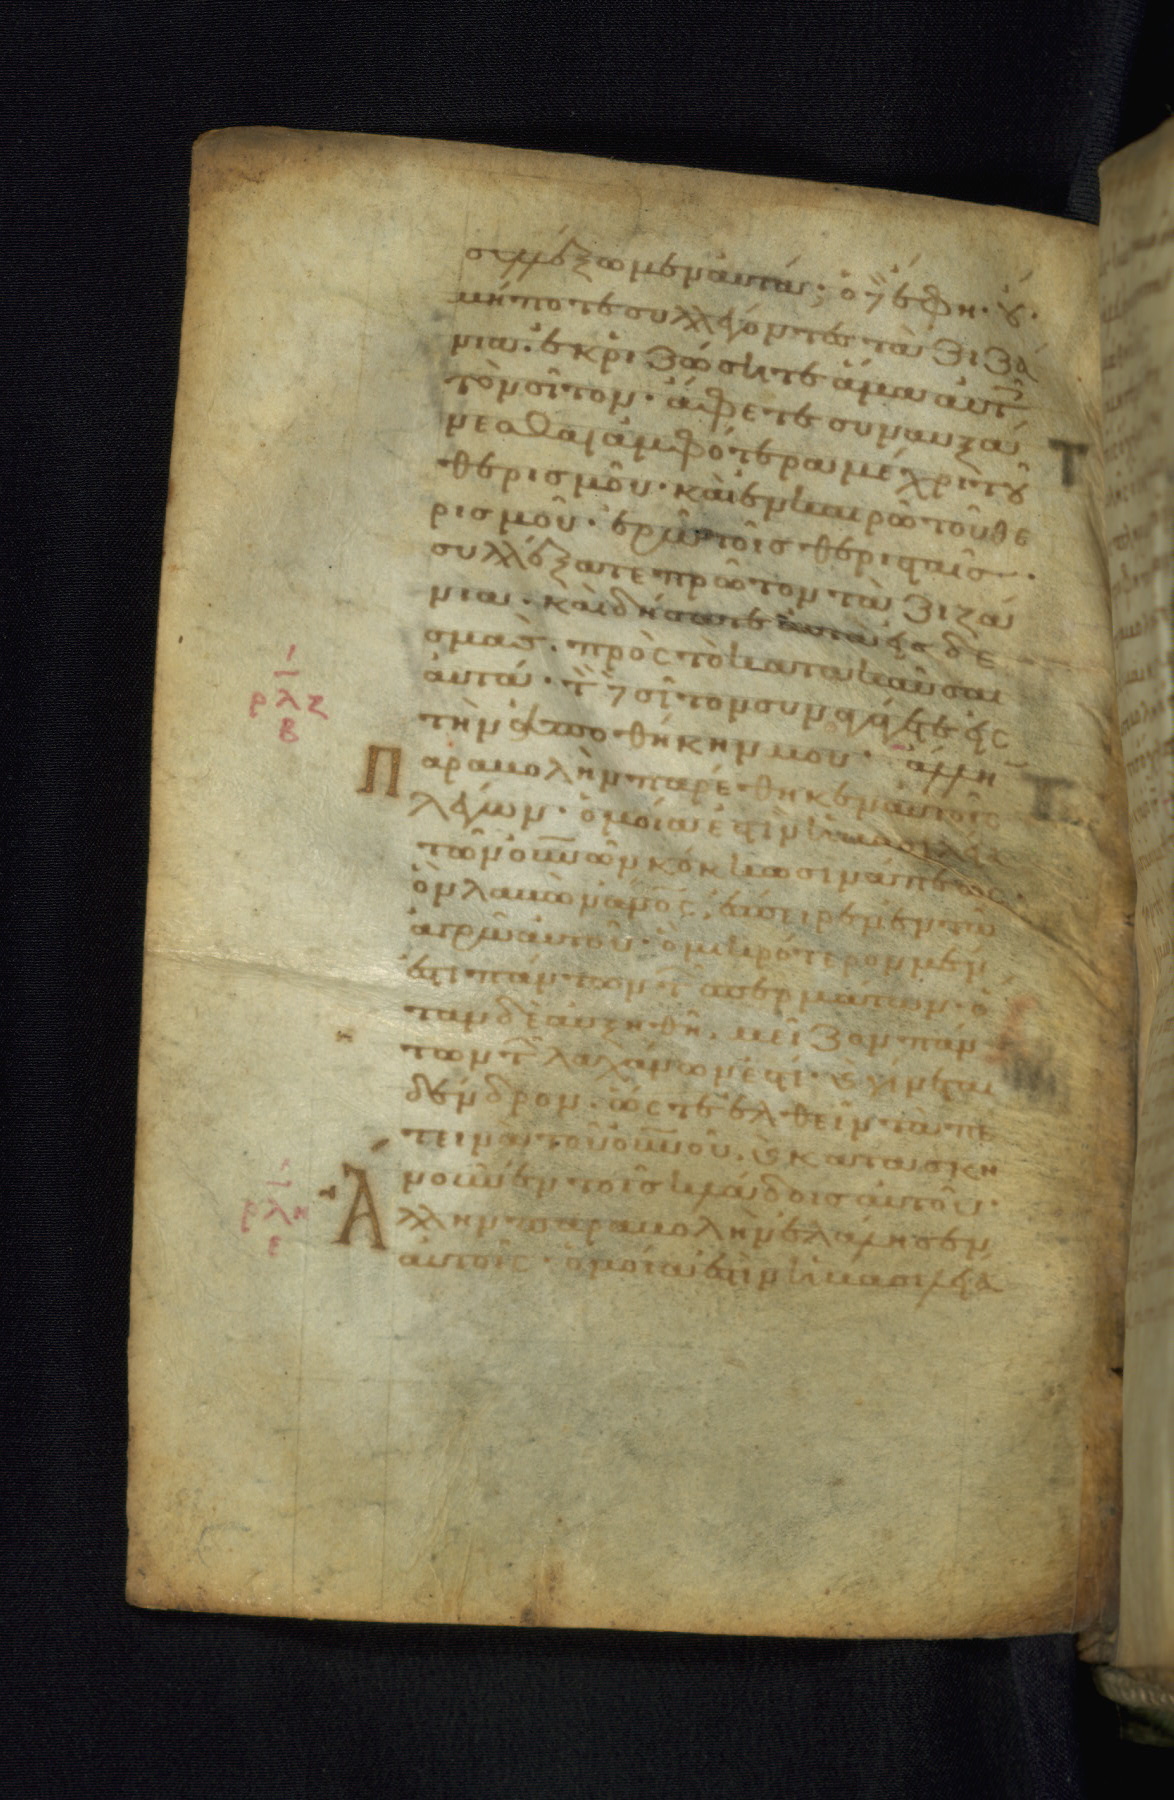 συλλέξωμεν αυτά· ὁ δὲ ἔφη· οὔ·
μήποτε συλλέγοντες τὰ ζιζά
νια· ἐκριζώσητε ἅμα αὐτοῖς
τὸν σῖτον· ἄφετε συναυξά
νεσθαι ἀμφότερα μέχρι τοῦ
θερισμοῦ· καὶ ἐν καιρῶ τοῦ θε
ρισμοῦ· ἐρῶ τοῖς θερισταῖς·
συλλέξατε πρῶτον τὰ ζιζά
νια· καὶ δήσατε αὐτὰ εἰς δε
σμὰς· πρὸς τὸ κατακαῦσαι
αὐτά· τὸν δὲ σῖτον συναγάγετε εἰς
τὴν ἀποθήκην μου· ἄλλη
Π αραβολὴν παρέθηκεν αὐτοῖς
λέγων· ὁμοία ἐστὶν ἡ βασιλεία
τῶν οὐνῶν κόκκω σινάπεως·
ὃν λαβὼν ἄνος, ἔσπειρεν ἐν τῶ
ἀγρῶ αὐτοῦ· ὃ μικρότερον μέν
ἐστι πάντων τῶν σπερμάτων· ὅ
ταν δὲ αὐξηθῆ, μεῖζον πάν
των τῶν λαχάνων ἐστί· καὶ γίνεται
δένδρον· ὥστε ἐλθεῖν τὰ πε
τεινὰ τοῦ οὐνοῦ, καὶ κατασκη
νοῦν ἐν τοῖς κλάδοις αὐτοῦ·
Ἄ λλην παραβολὴν ἐλάλησεν
αὐτοῖς· ὁμοία ἐστὶν ἡ βασιλεία
ρλζ
β
ρλη
ε